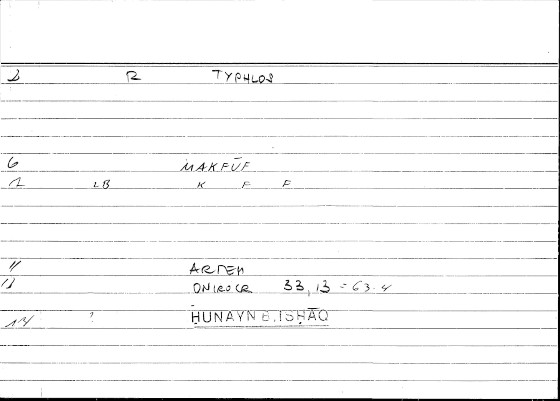 2 R TYPHLOS
6 MAKFŪF
LB K F F
11 ARTEM
ONIROCR 33,13 = 63.4
14 ? ḤUNAYN B. ISḤĀQ